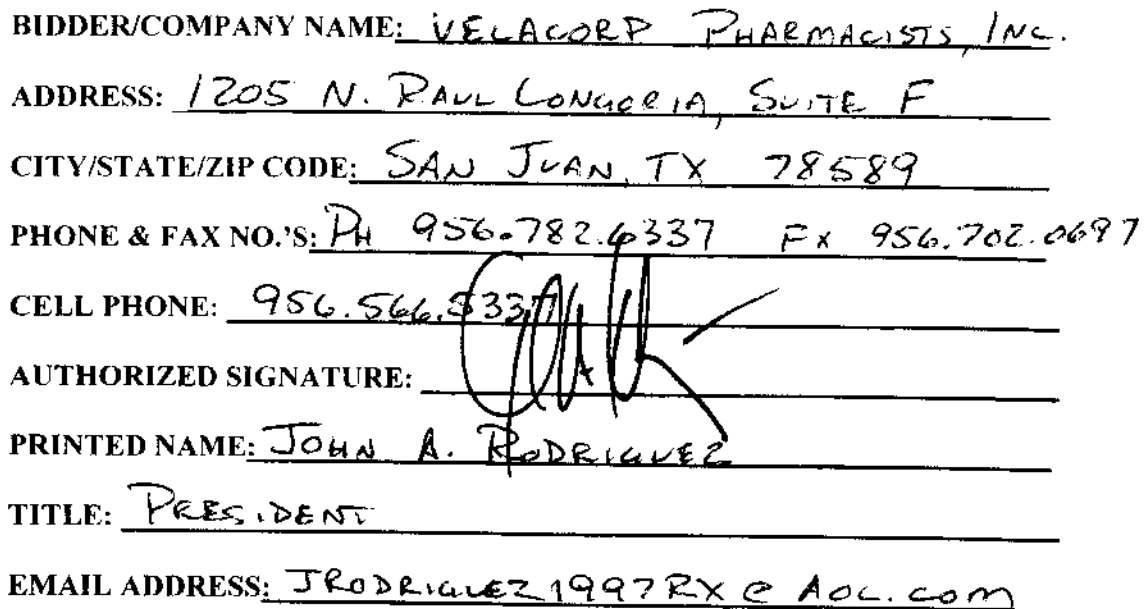 BIDDER/COMPANY NAME: VELACORP PHARMACISTS, INC.
ADDRESS: 1205 N. RAUL LONGORIA, SUITE F
CITY/STATE/ZIP CODE: SAN JUAN, TX 78589
PHONE & FAX NO.'S: PH 956.782.6337 FX 956.702.0697
CELL PHONE: 956.566.5337
AUTHORIZED SIGNATURE:
PRINTED NAME: JOHN A. RODRIGUEZ
TITLE: PRESIDENT
EMAIL ADDRESS: JRODRIGUEZ1997RX@AOL.COM